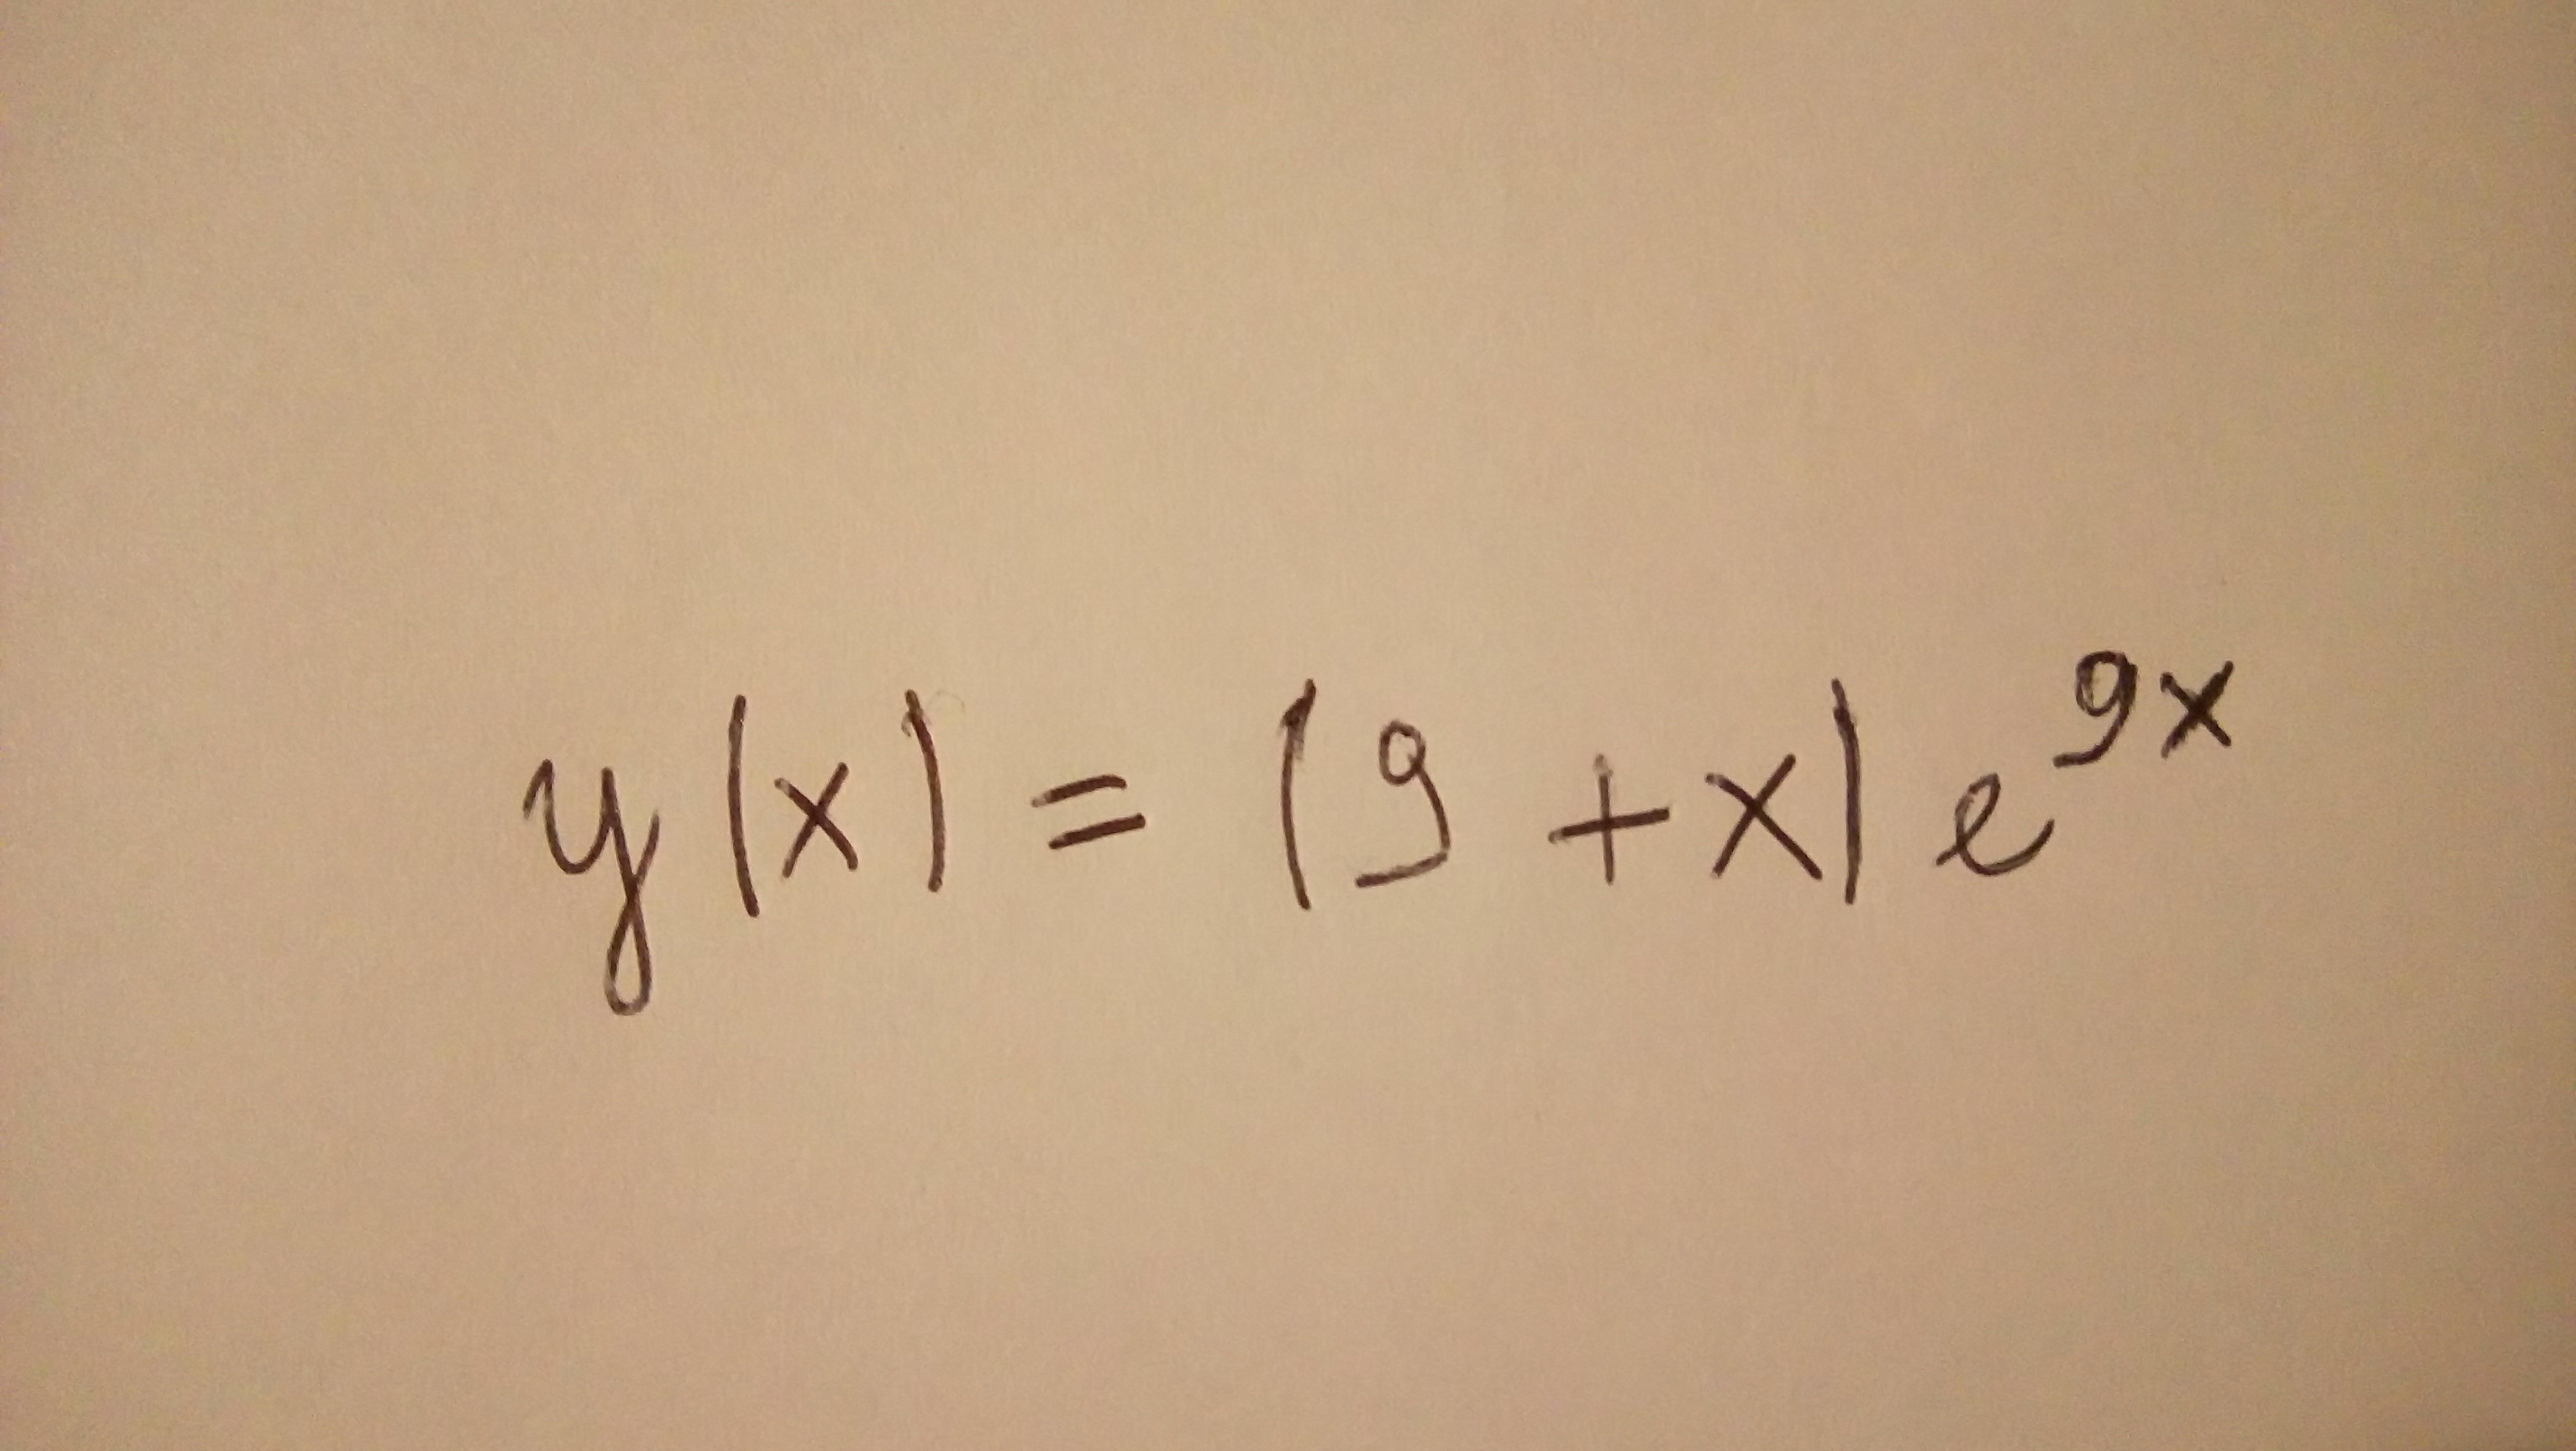 y(x) = (9 + x) e^{9x}